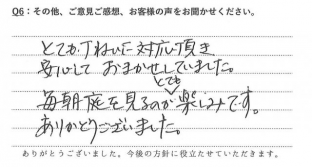 Q6：その他、ご意見ご感想、お客様の声をお聞かせください。
とてもていねいに対応頂き
安心して おまかせしていました。
毎朝庭を見るのがとても楽しみです。
ありがとうございました。
ありがとうございました。今後の方針に役立たせていただきます。